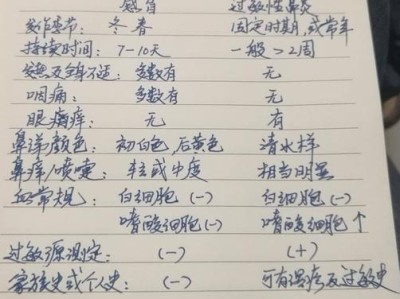 感冒 过敏性鼻炎
发作季节: 冬春 固定时期,或常年
持续时间: 7-10天 一般>2周
发热及全身不适: 多数有 无
咽痛: 多数有 无
眼痛痒: 无 有
鼻涕颜色: 初白色,后黄色 清水样
鼻痒/喷嚏: 轻或中度 相当明显
血常规: 白细胞(-) 白细胞(-)
嗜酸细胞(-) 嗜酸细胞↑
过敏源测定: (-) (+)
家族史或个人史: (-) 可有湿疹及过敏史